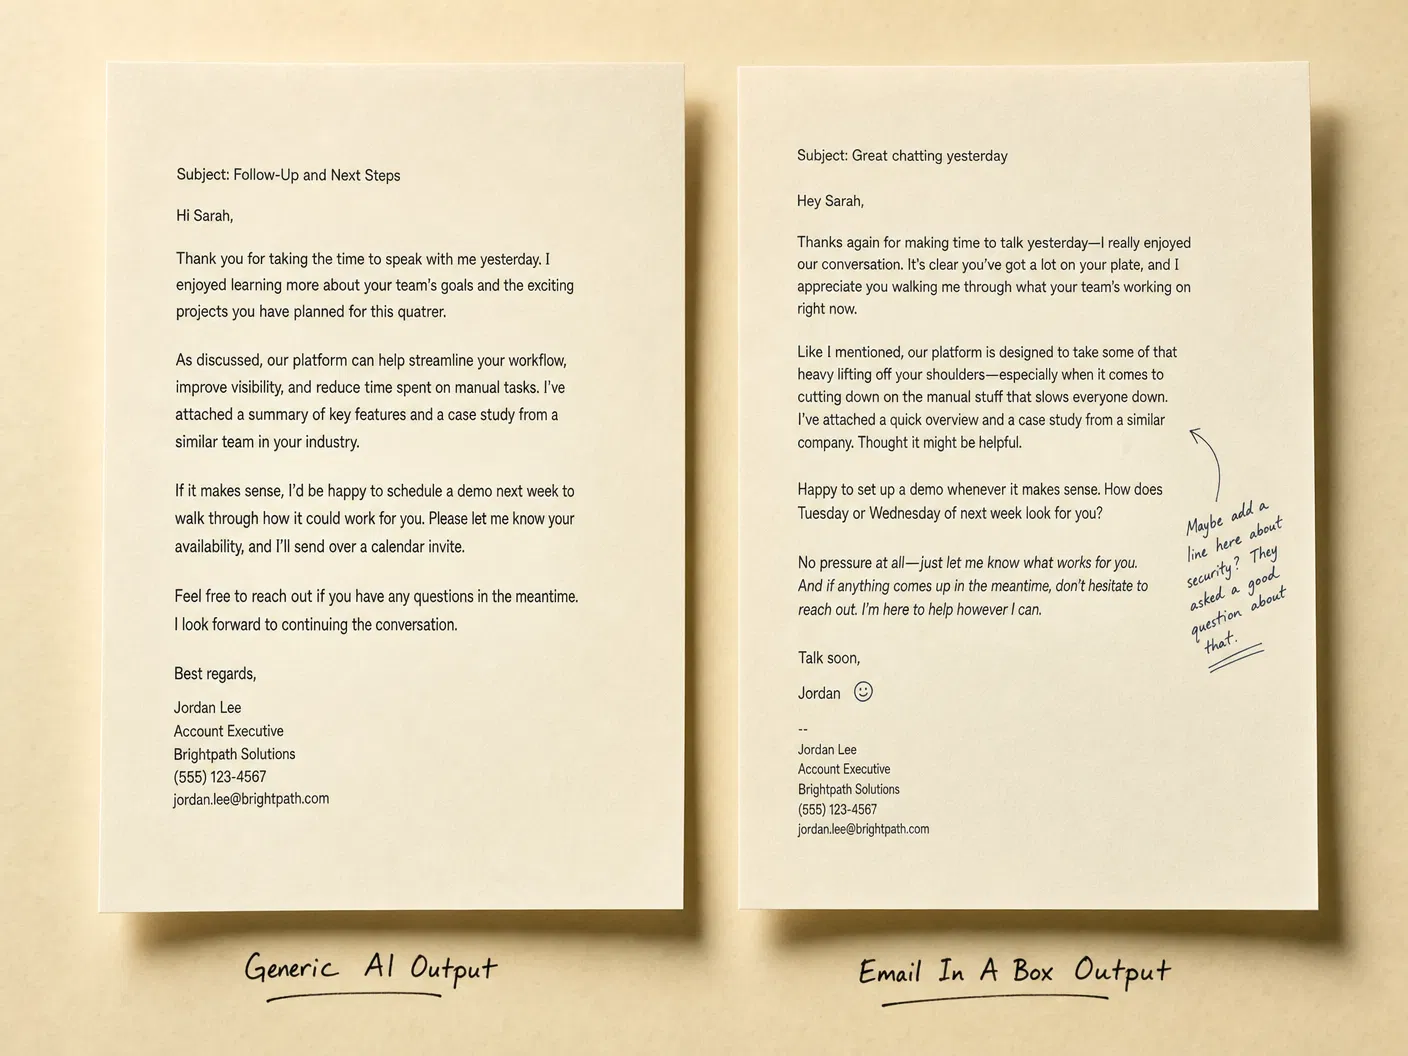 Subject: Follow-Up and Next Steps
Hi Sarah,
Thank you for taking the time to speak with me yesterday. I
enjoyed learning more about your team's goals and the exciting
projects you have planned for this quatrer.
As discussed, our platform can help streamline your workflow,
improve visibility, and reduce time spent on manual tasks. I've
attached a summary of key features and a case study from a
similar team in your industry.
If it makes sense, I'd be happy to schedule a demo next week to
walk through how it could work for you. Please let me know your
availability, and I'll send over a calendar invite.
Feel free to reach out if you have any questions in the meantime.
I look forward to continuing the conversation.
Best regards,
Jordan Lee
Account Executive
Brightpath Solutions
(555) 123-4567
jordan.lee@brightpath.com
Generic AI Output
Subject: Great chatting yesterday
Hey Sarah,
Thanks again for making time to talk yesterday—I really enjoyed
our conversation. It's clear you've got a lot on your plate, and I
appreciate you walking me through what your team's working on
right now.
Like I mentioned, our platform is designed to take some of that
heavy lifting off your shoulders—especially when it comes to
cutting down on the manual stuff that slows everyone down.
I've attached a quick overview and a case study from a similar
company. Thought it might be helpful.
Happy to set up a demo whenever it makes sense. How does
Tuesday or Wednesday of next week look for you?
No pressure at all—just let me know what works for you.
And if anything comes up in the meantime, don't hesitate to
reach out. I'm here to help however I can.
Talk soon,
Jordan ☺
--
Jordan Lee
Account Executive
Brightpath Solutions
(555) 123-4567
jordan.lee@brightpath.com
Maybe add a
line here about
security? They
asked a good
question about
that.
Email In A Box Output